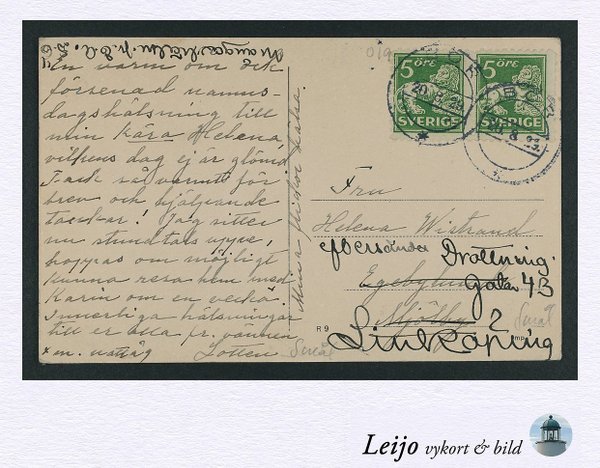 En varm om ock
försenad namns-
dagshälsning till
min kära Helena
vilkens dag ej är glömd
Tack så varmt för
brev och hjälpande
tankar! Jag sitter
nu stundtals uppe,
hoppas om möjligt
kunna resa hem med
Karin om en vecka
Innerliga hälsningar
till er alla fr. vännen
Lotten
5 ÖRE
SVERIGE
5 ÖRE
SVERIGE
20.8.23.
Fru
Helena Wistrand
eftersändes Drottning.
gatan 43
Egebyhus
Mjölby 2
Linköping
R 9
Leijo vykort & bild